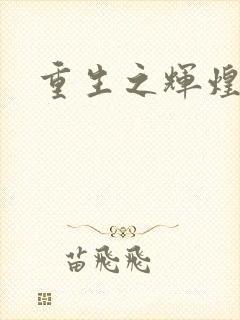 重生之輝煌
苗飛飛